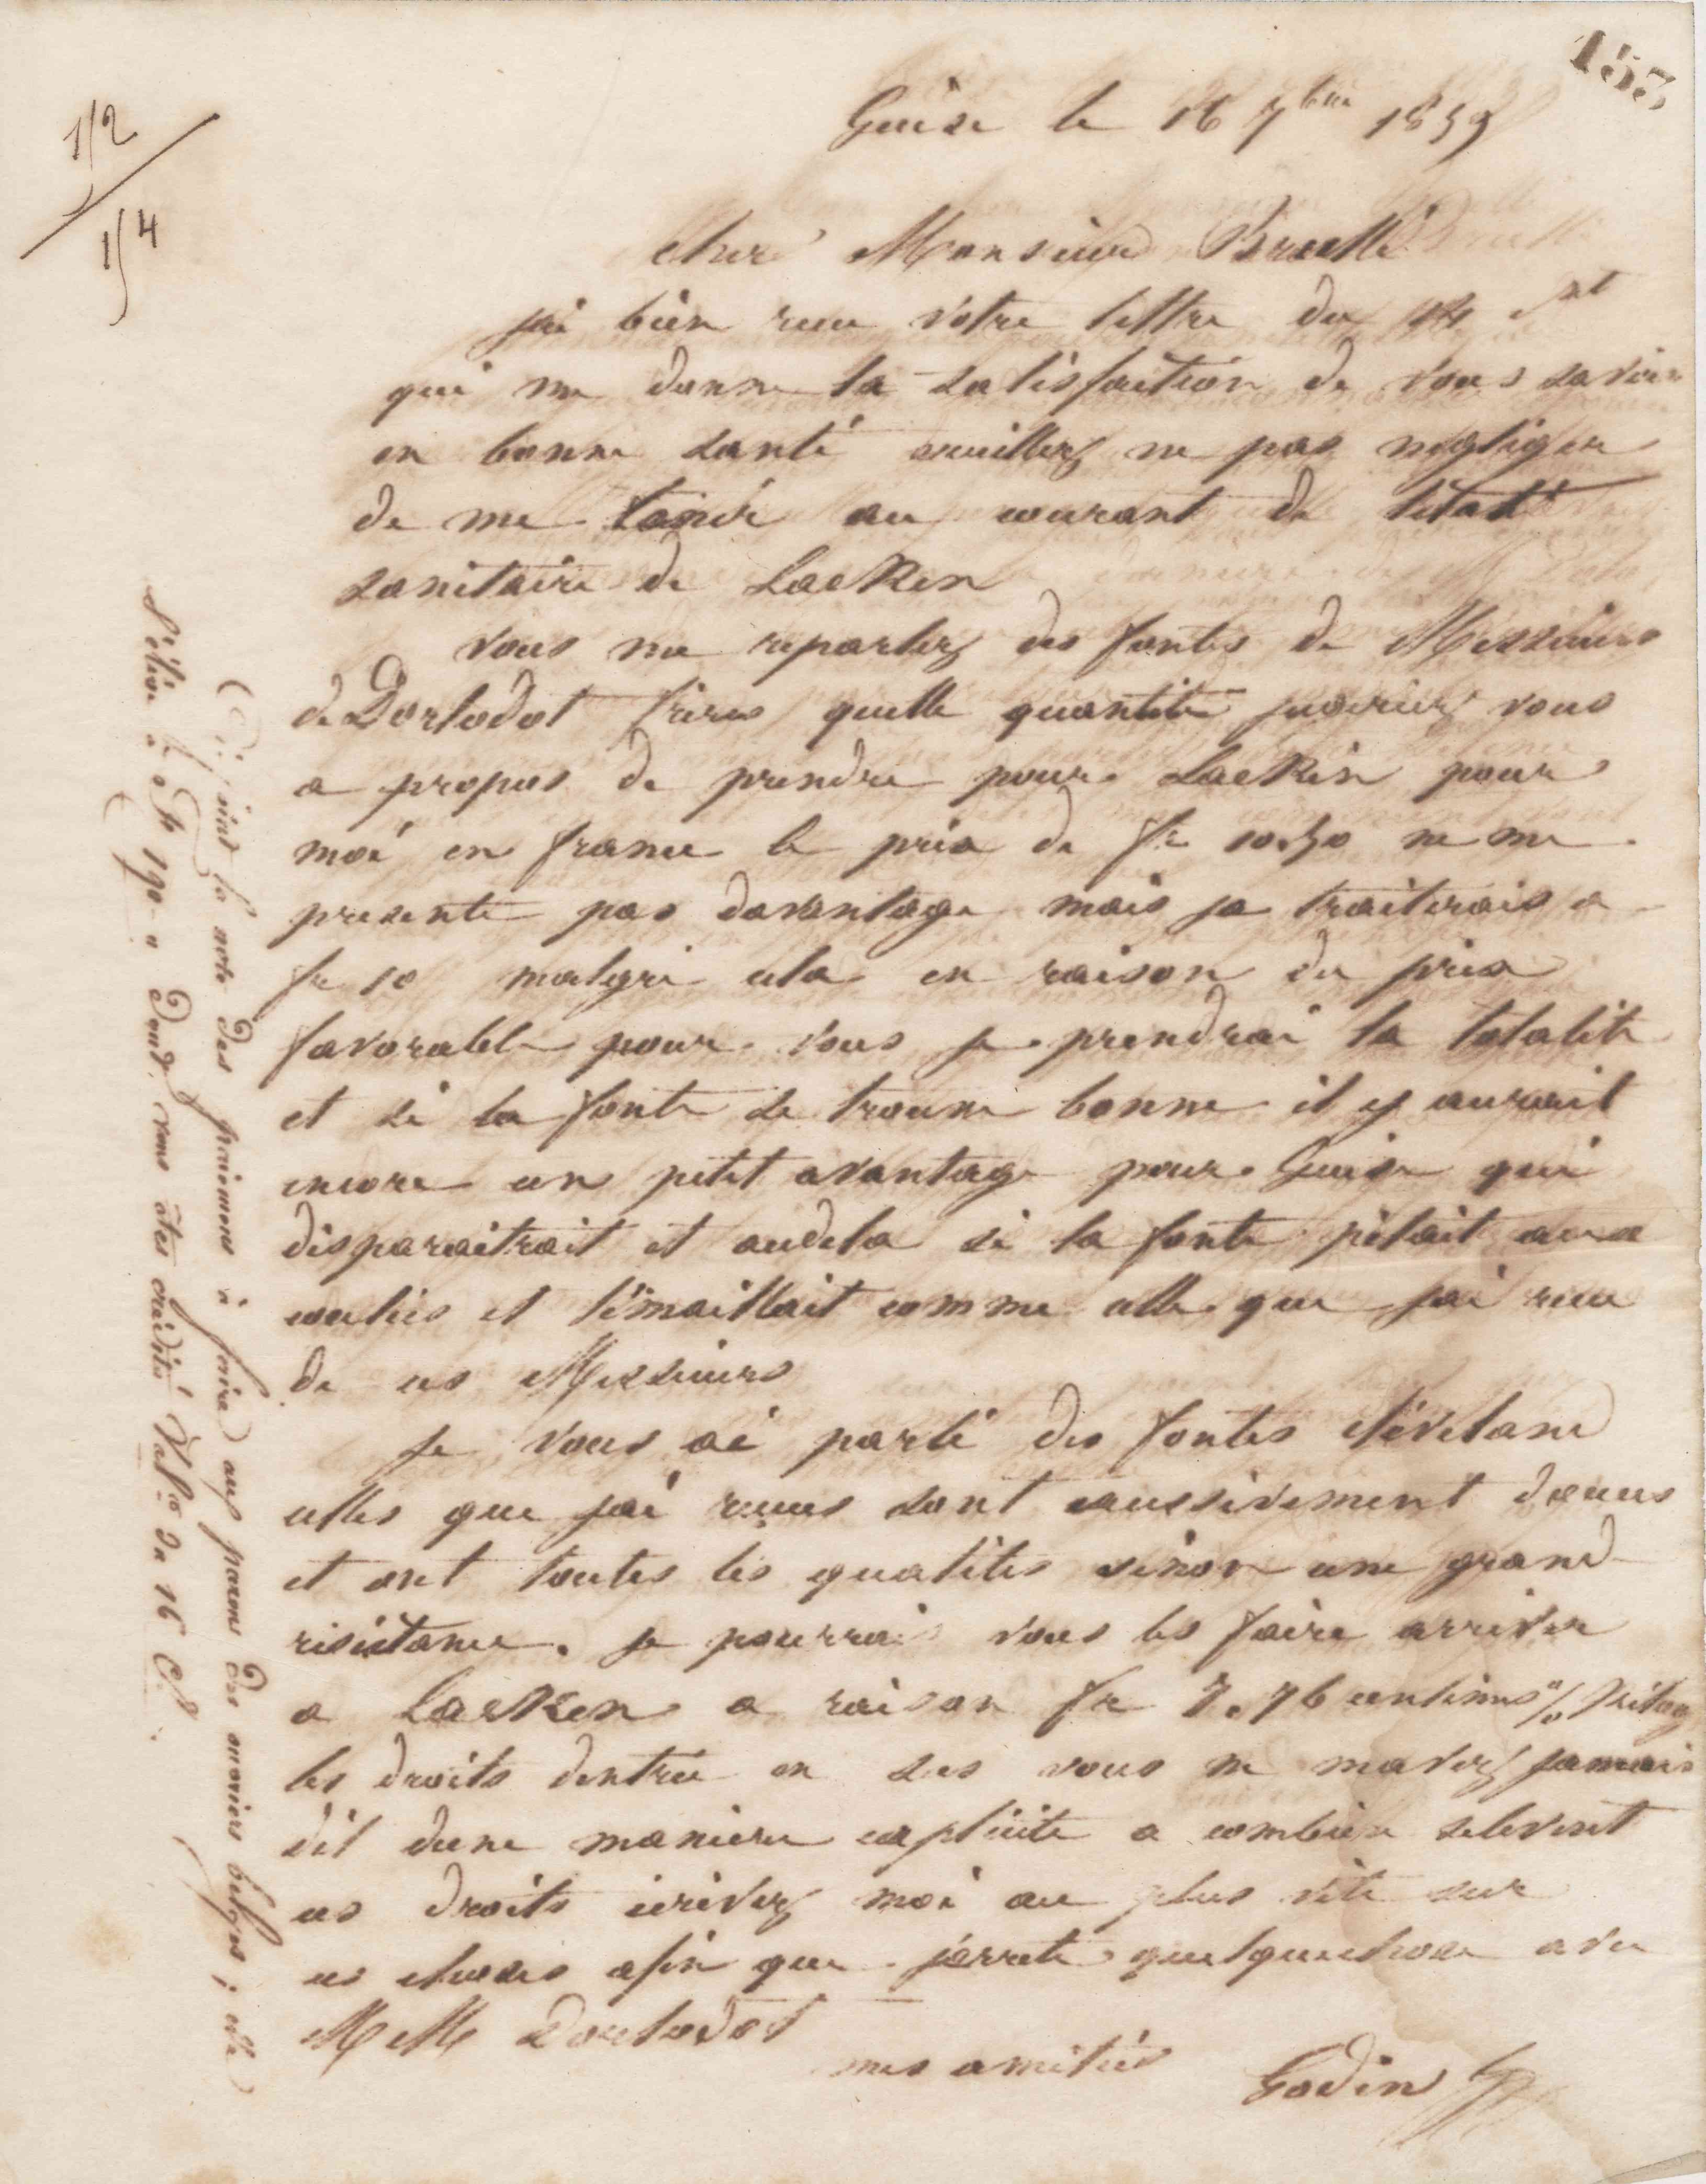 153
1/2
1/4
Guise le 16 7bre 1859
cher Monsieur Brullé
jai bien recu votre lettre du 14 ct
qui me donne la satisfaction de vous savoir
en bonne santé veuillez ne pas negliger
de me tenir au courant de letat
sanitaire de LaeKen
vous me reparlez des fontes de Messieurs
de Dorlodot frères quelle quantité jugeriez vous
a propos de prendre pour LaeKen pour
moi en france le prix de fr 10.50 ne me
presente pas davantage mais je traiterais a
fr 10 malgré cela en raison du prix
favorable pour vous je prendrai la totalité
et si la fonte se trouve bonne il y aurait
encore un petit avantage pour Guise qui
disparaitrait et audela si la fonte pétait aux
coulées et s'émaillait comme celle que jai recu
de ces Messieurs
je vous ai parlé des fontes cléveland
celles que jai recues sont excessivement douces
et ont toutes les qualités sinon une grand
resistance. je pourrais vous les faire arriver
a LaeKen a raison fr 7.76 centimes %
les droits dentrée en sus vous ne mavez jamais
dit dune maniere explicite a combien selevent
ces droits ecrivez moi au plus vite sur
ces choses afin que jarrete quelquechose avec
MM Dorlodot
mes amitiés
Godin
Ci-joint la note des paiemens à faire aux parens des ouviers belges; elle
s'élève à fr 190 - dont vous êtes crédité Valr du 16 Ct.